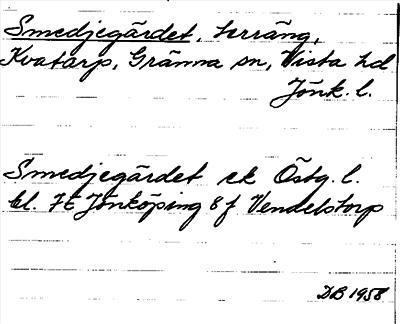 Smedjegärdet, terräng,
Kvatarp, Gränna sn, Vista hd
Jönk. l.
Smedjegärdet ek Östg. l.
bl. 7E Jönköping 8 f Vendelstorp
DB 1958